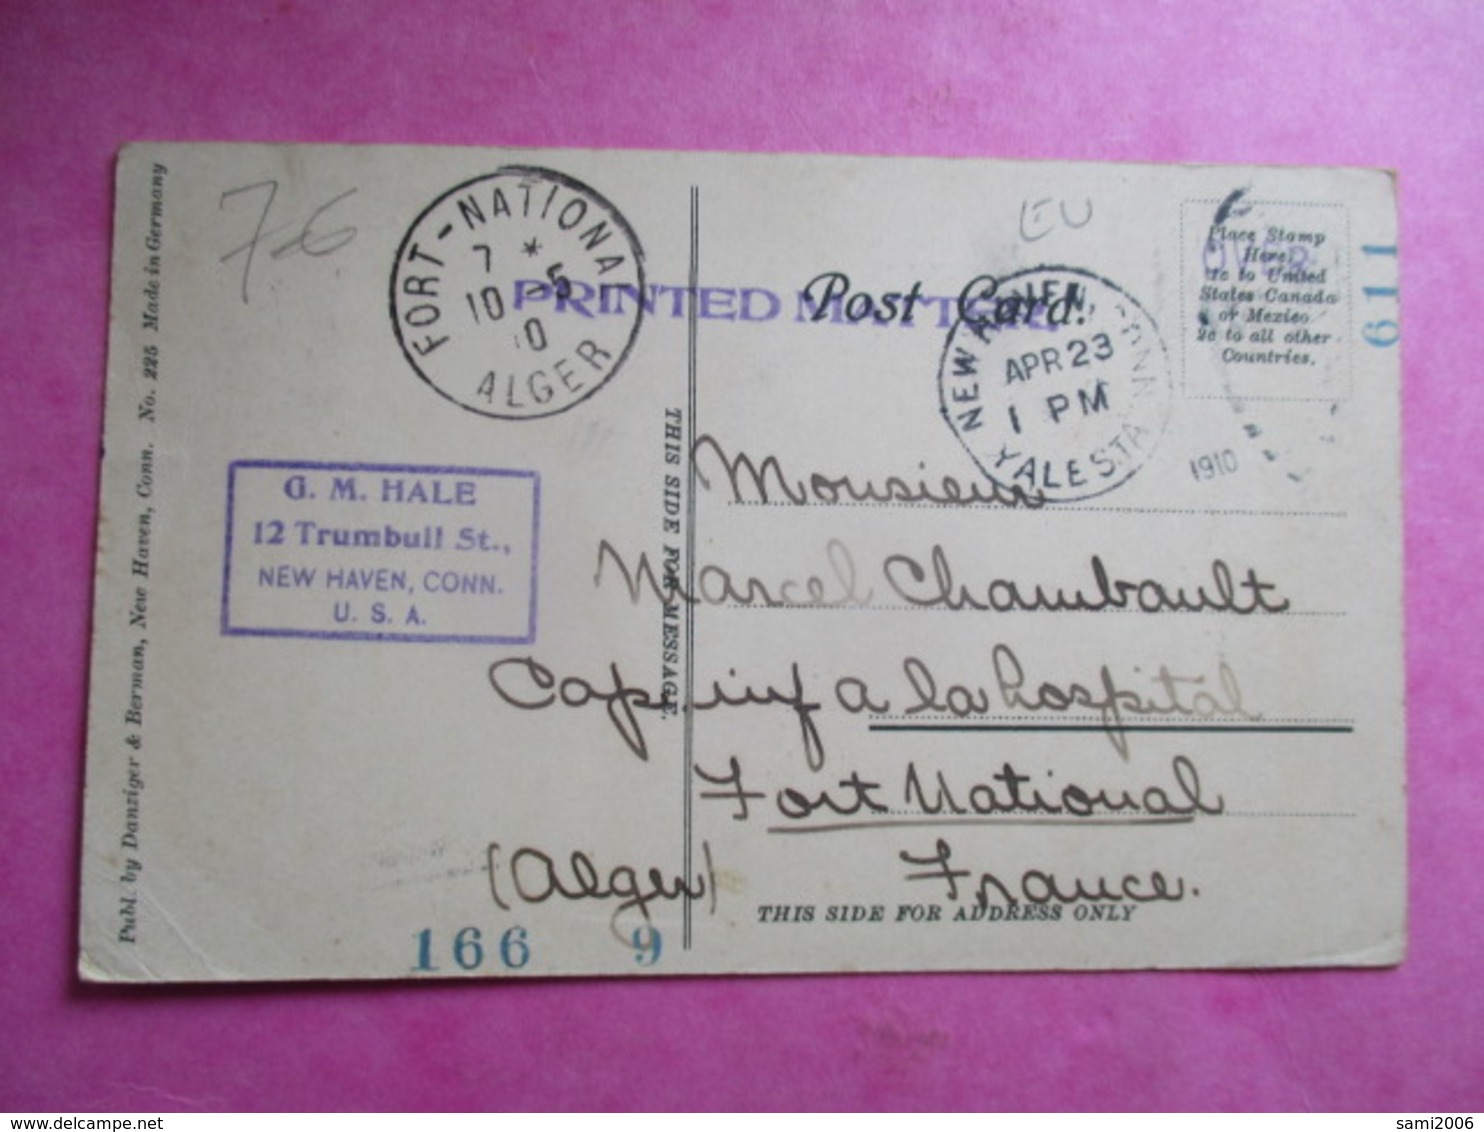 Publ. by Danziger & Berman, New Haven, Conn. No. 225 Made in Germany
76
FORT-NATIONAL
7 *
10 -5
10
ALGER
PRINTED MATTER
Post Card.
EU
NEW HAVEN, CONN.
APR 23
1 PM
YALE STA.
1910
Place Stamp
Here
1c to United
States Canada
or Mexico
2c to all other
Countries.
611
G. M. HALE
12 Trumbull St.,
NEW HAVEN, CONN.
U. S. A.
THIS SIDE FOR MESSAGE.
Monsieur
Marcel Chambault
Cap. inf a la hospital
Fort National
(Alger) France.
THIS SIDE FOR ADDRESS ONLY
166 9
www.delcampe.net
sami2006